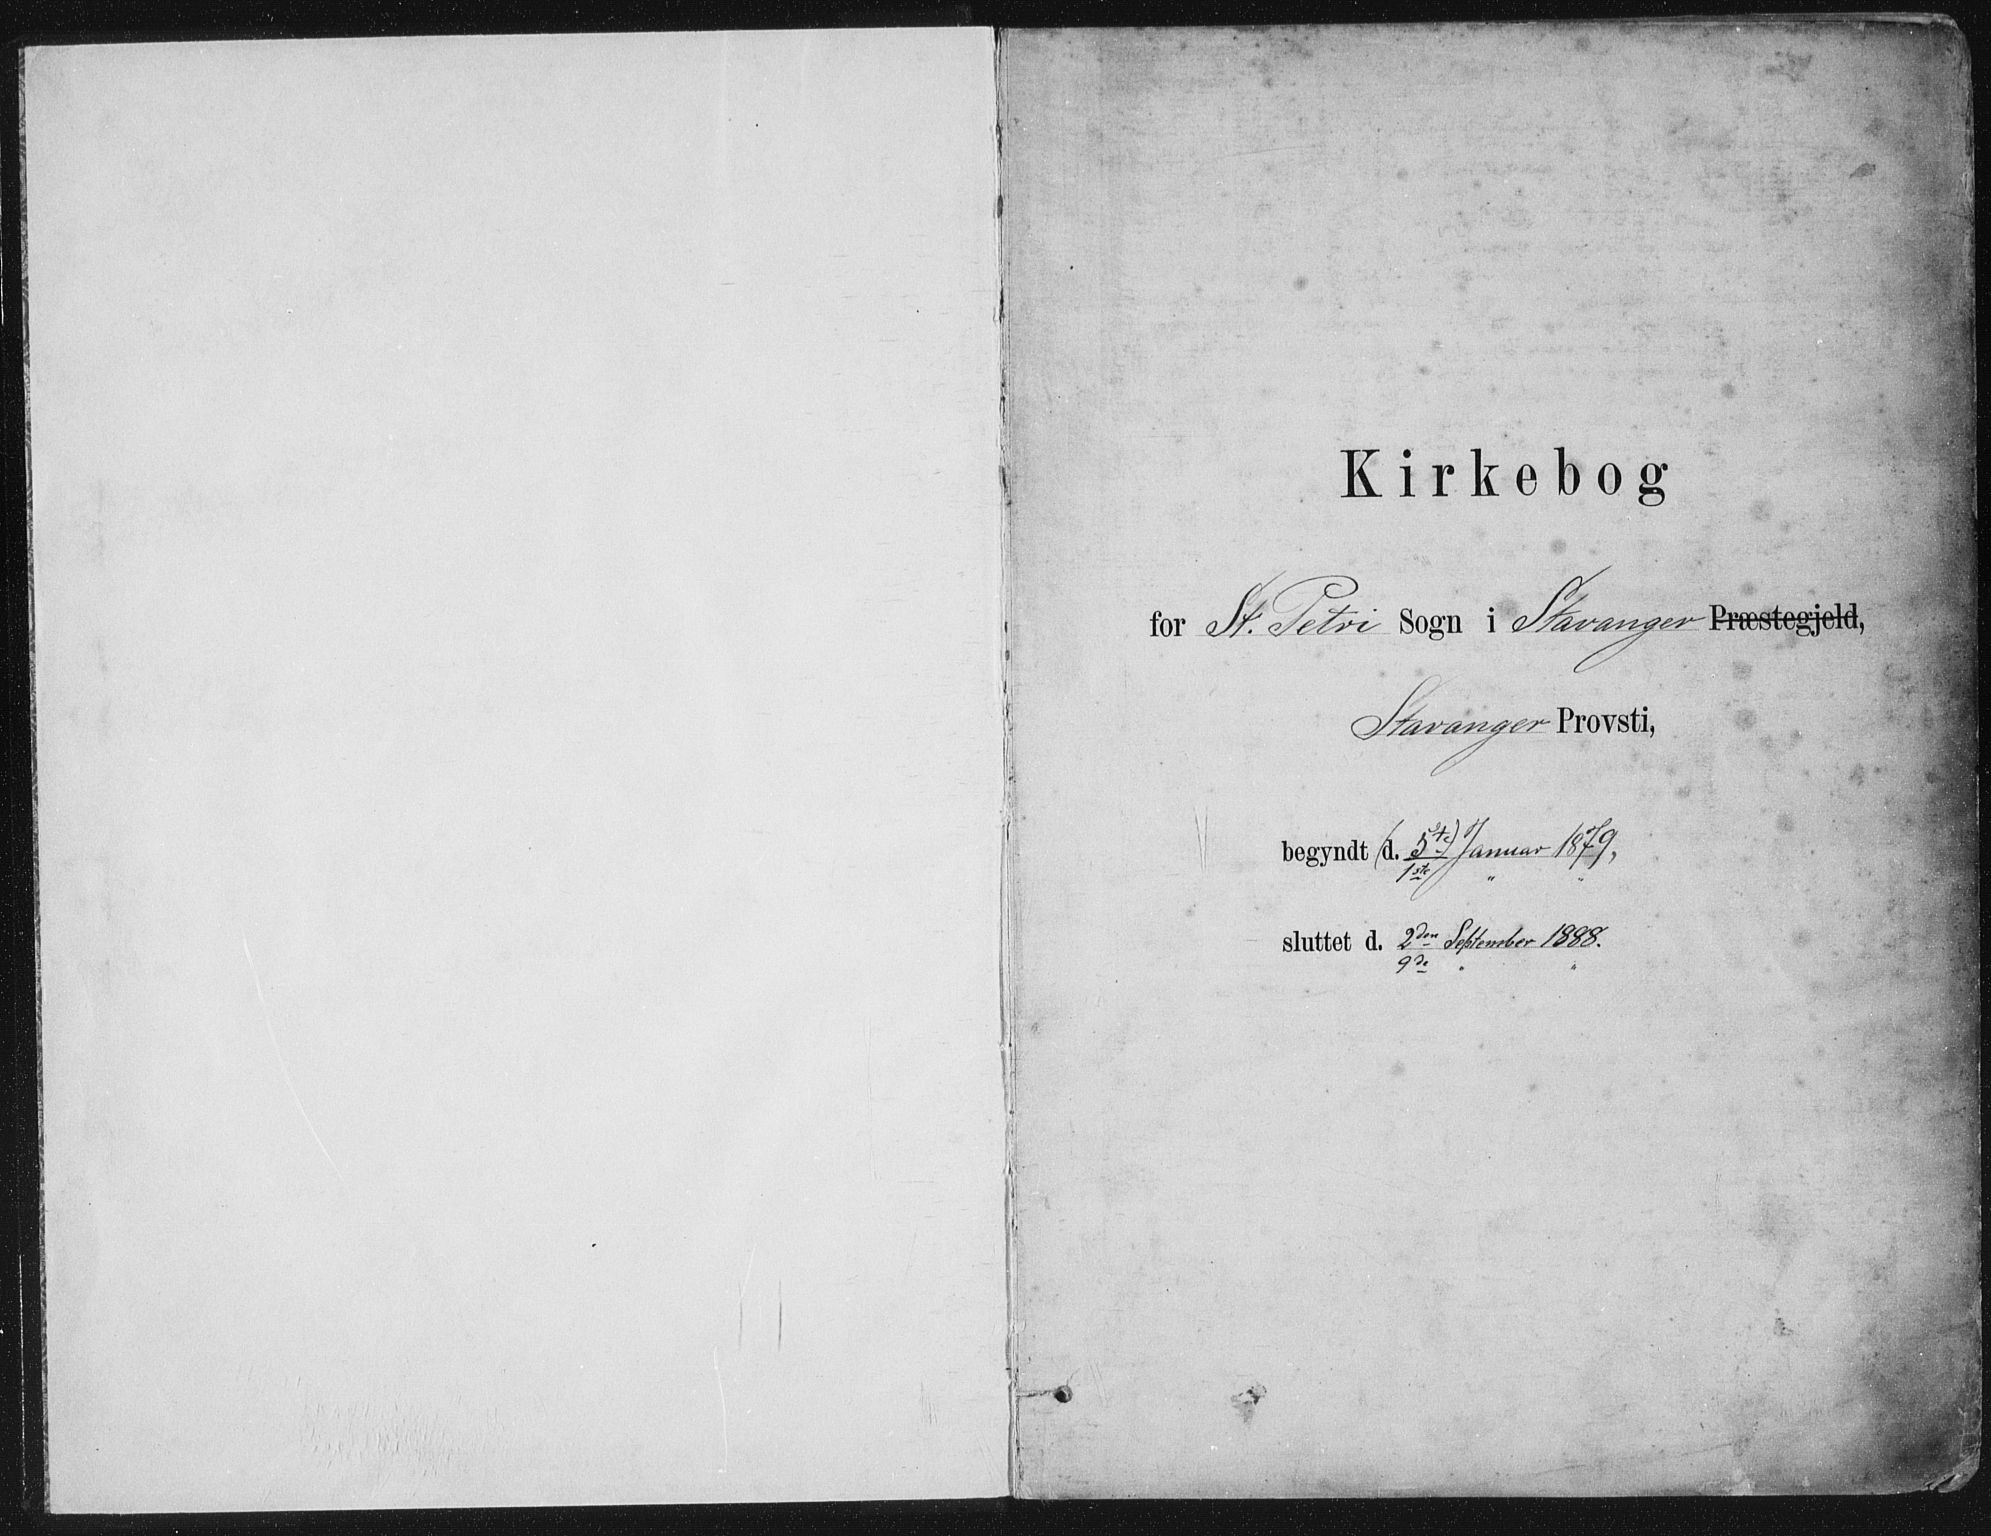 Kirkebog
for St. Petri Sogn i Stavanger Præstegjeld,
Stavanger Provsti,
begyndt (d. 5te) Januar 1879,
1ste " "
sluttet d. 2den September 1888.
9de " "